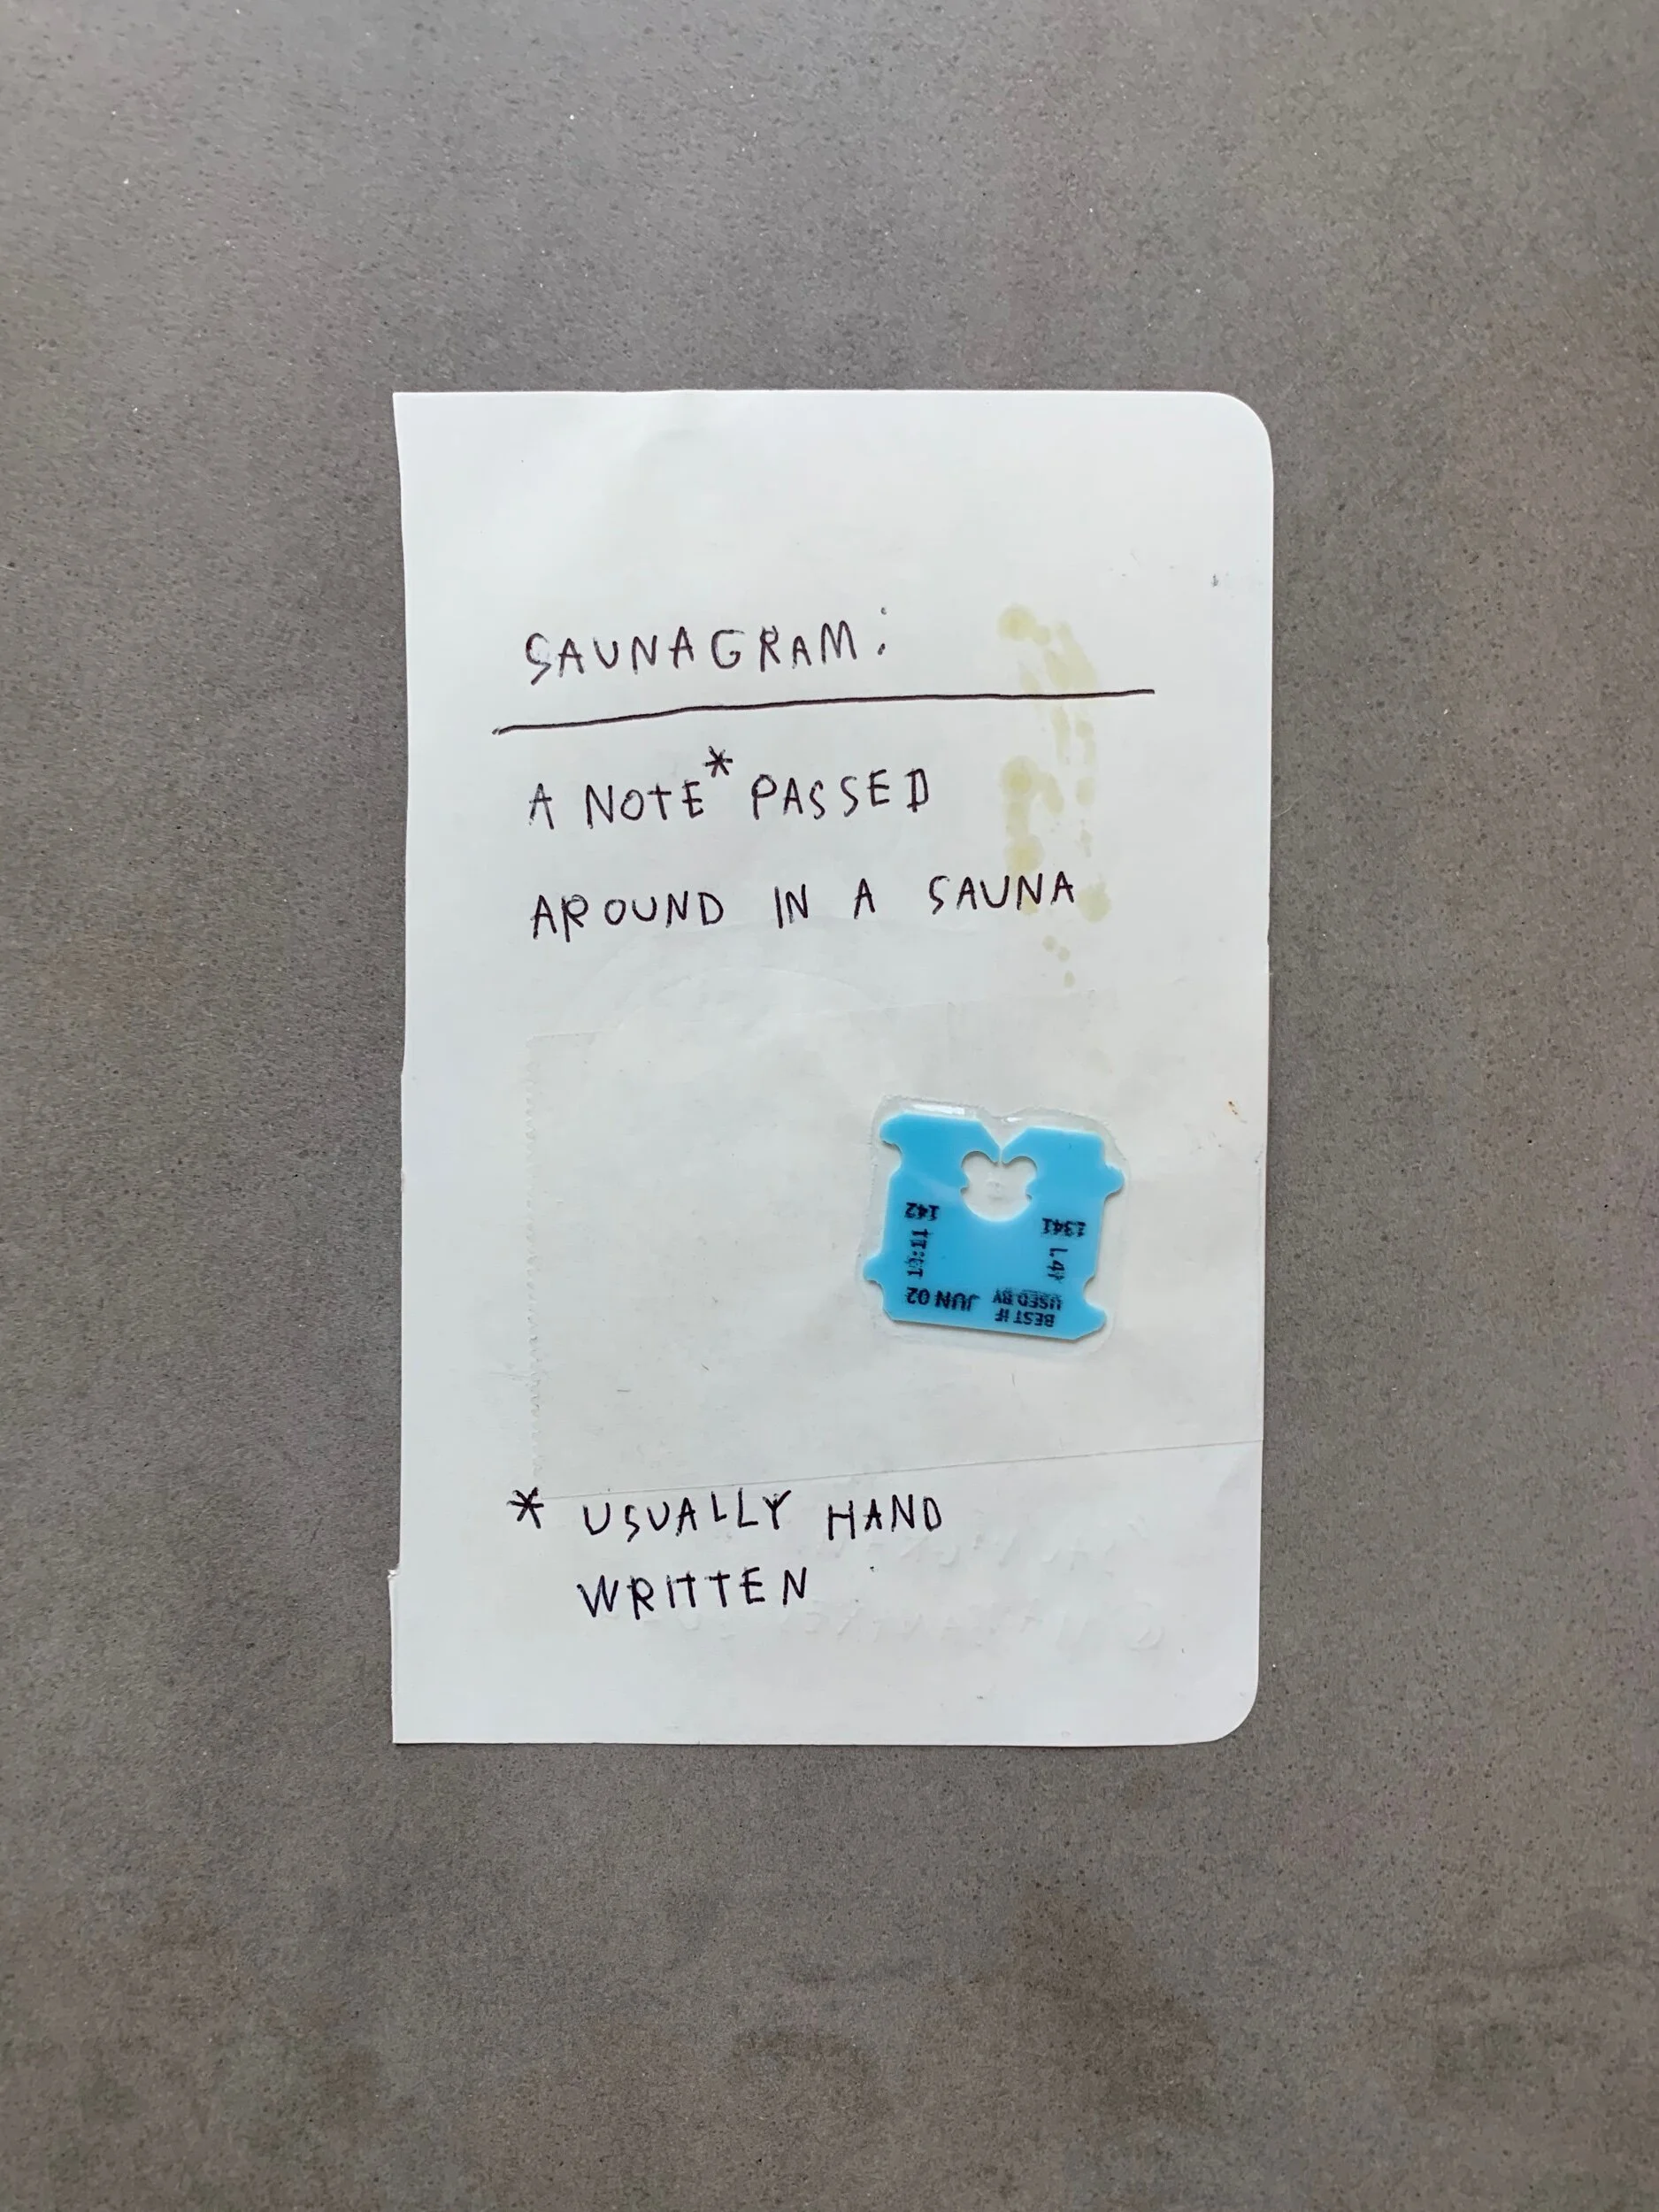 SAUNAGRAM:
A NOTE* PASSED
AROUND IN A SAUNA
BEST IF
USED BY JUN 02
1341
142
* USUALLY HAND
WRITTEN